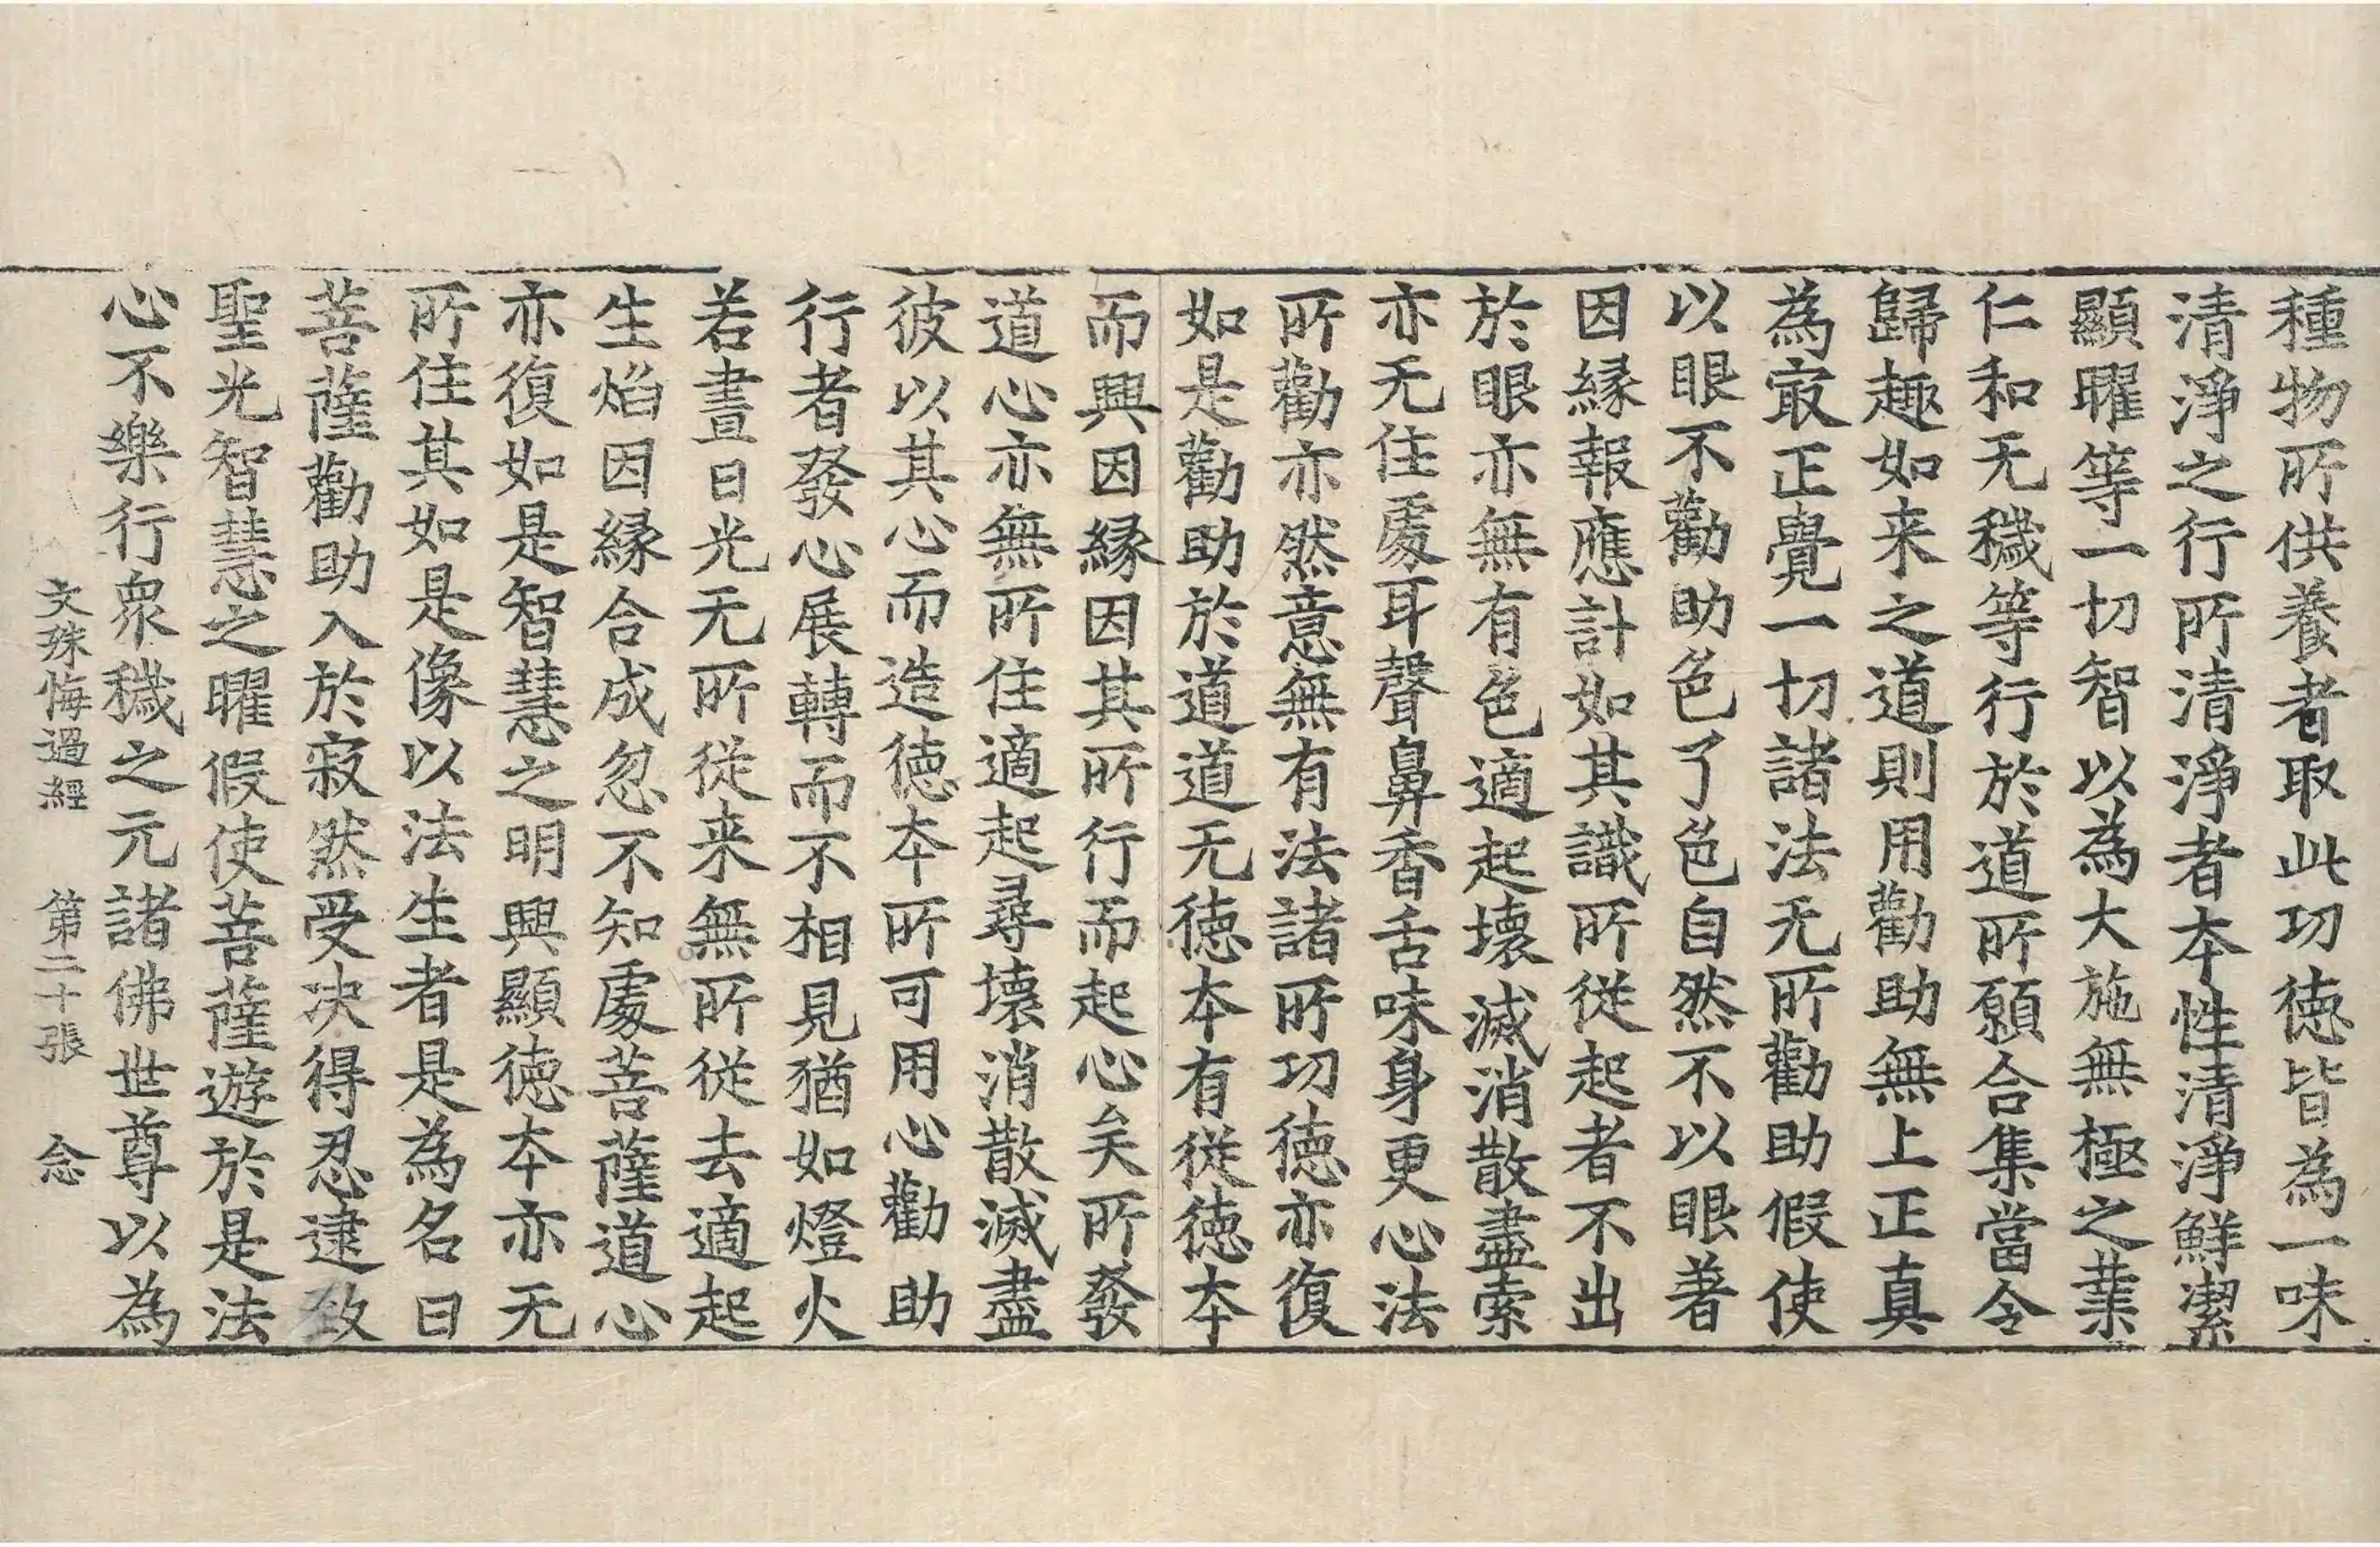 種物所供養者取此功徳皆為一味
清淨之行所清淨者夲性清淨鮮潔
顯曜等一切智以為大施無極之業
仁和无穢等行於道所願合集當令
歸趣如来之道則用勸助無上正真
為㝡正覺一切諸法无所勸助假使
以眼不勸助色了色自然不以眼著
因縁報應計如其識所従起者不出
於眼亦無有色適起壞滅消散盡索
亦无住處耳聲鼻香舌味身更心法
所勸亦然意無有法諸所功徳亦復
如是勸助於道道无徳夲有従徳夲
而興因縁因其所行而起心矣所發
道心亦無所住適起尋壞消散滅盡
彼以其心而造徳夲所可用心勸助
行者發心展轉而不相見猶如燈火
若晝日光无所従来無所従去適起
生焰因縁合成忽不知處菩薩道心
亦復如是智慧之明興顯徳夲亦无
所住其如是像以法生者是為名曰
菩薩勸助入於寂然受决得忍逮致
聖光智慧之曜假使菩薩遊於是法
心不樂行衆穢之元諸佛世尊以為
文殊悔過經 第二十張 念